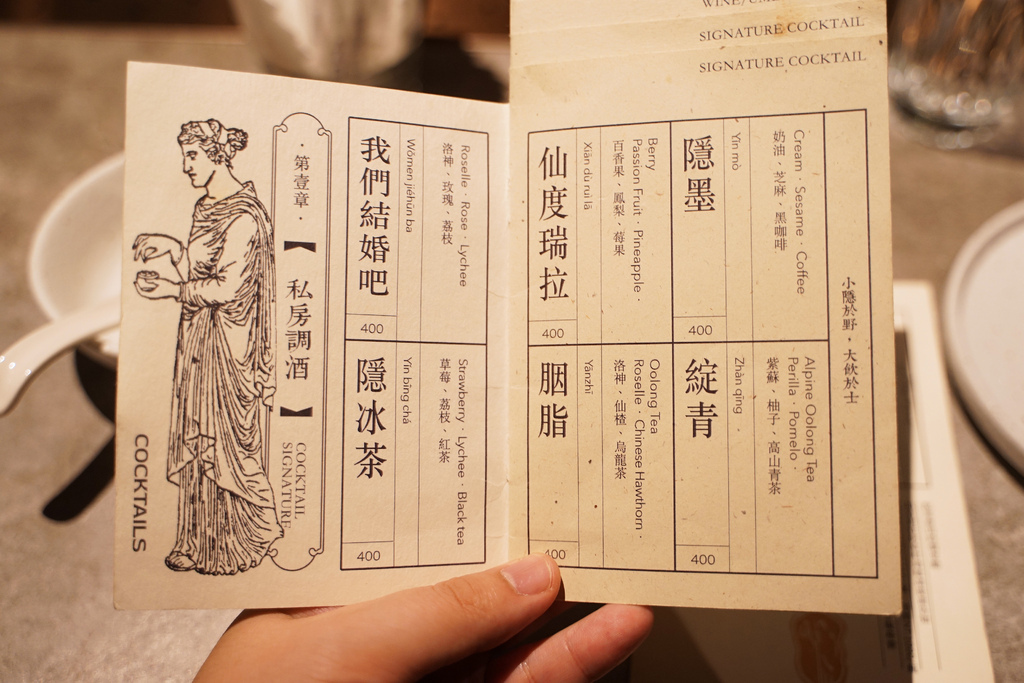 WINE/
SIGNATURE COCKTAIL
SIGNATURE COCKTAIL
小隱於野，大飲於士
Cream · Sesame · Coffee
奶油、芝麻、黑咖啡
Yǐn mò
隱墨
400
Alpine Oolong Tea
Perilla · Pomelo ·
紫蘇、柚子、高山青茶
Zhàn qīng
綻青
400
Berry
Passion Fruit · Pineapple ·
百香果、鳳梨、莓果
Xiān dù ruì lā
仙度瑞拉
400
Oolong Tea
Roselle · Chinese Hawthorn ·
洛神、仙楂、烏龍茶
Yānzhī
胭脂
400
Roselle · Rose · Lychee
洛神、玫瑰、荔枝
Wǒmen jiéhūn ba
我們結婚吧
400
Strawberry · Lychee · Black tea
草莓、荔枝、紅茶
Yǐn bīng chá
隱冰茶
400
· 第壹章 ·
【 私房調酒 】
COCKTAIL
SIGNATURE
COCKTAILS